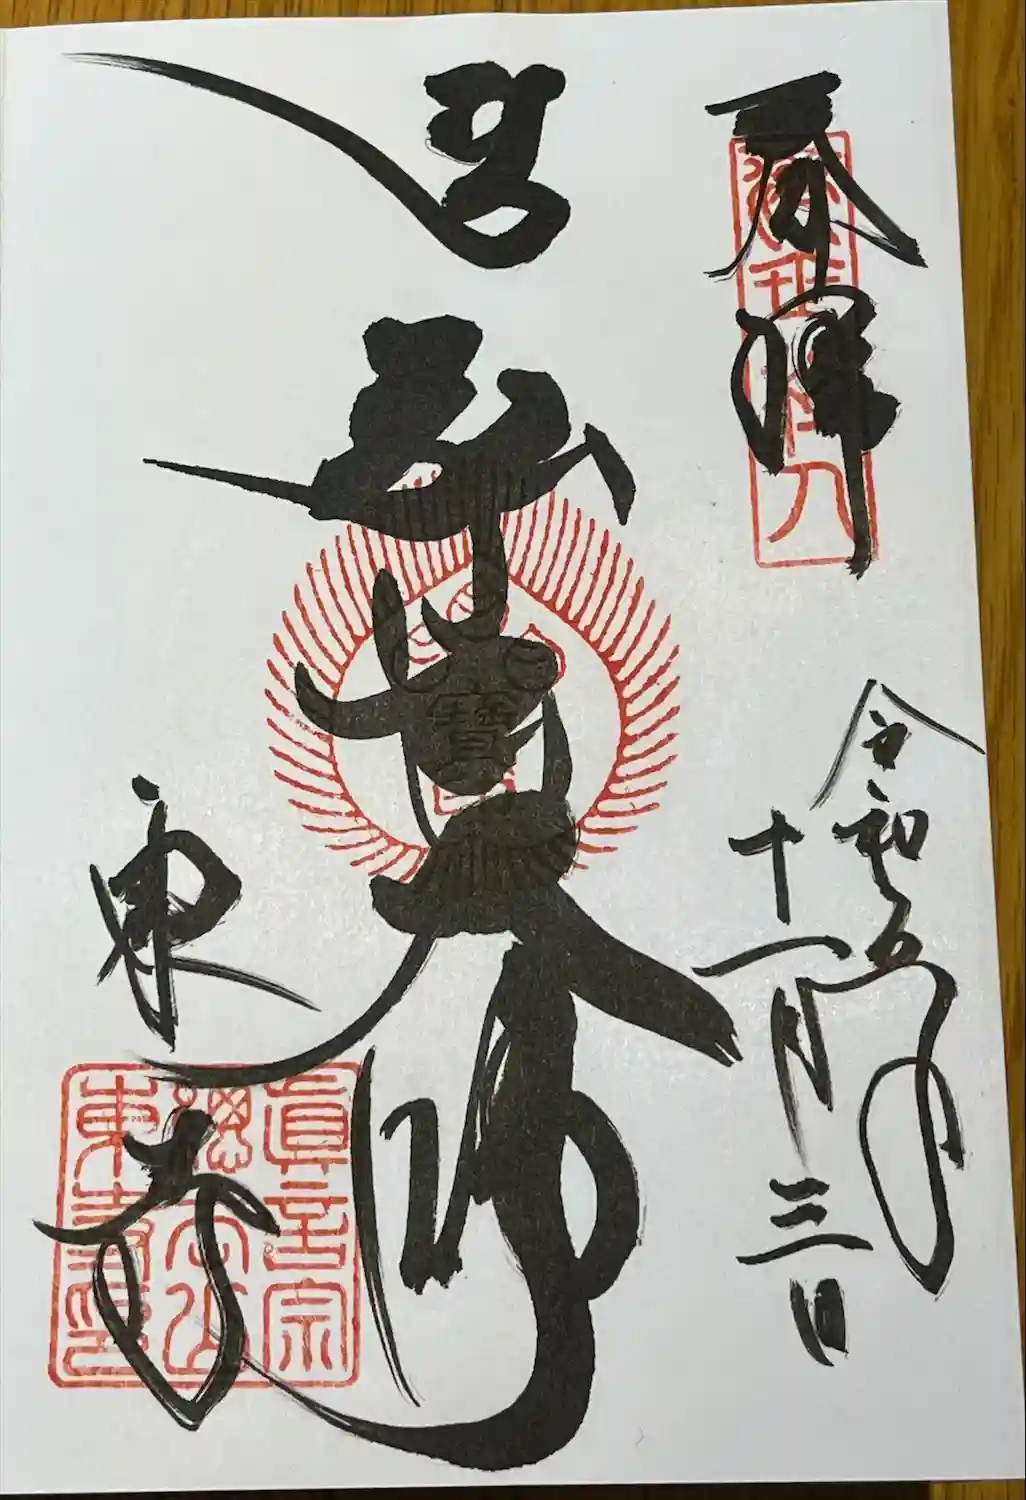 奉拝
令和五年
十一月三日
弘法大師
東寺
眞言宗
總本山
東寺之印